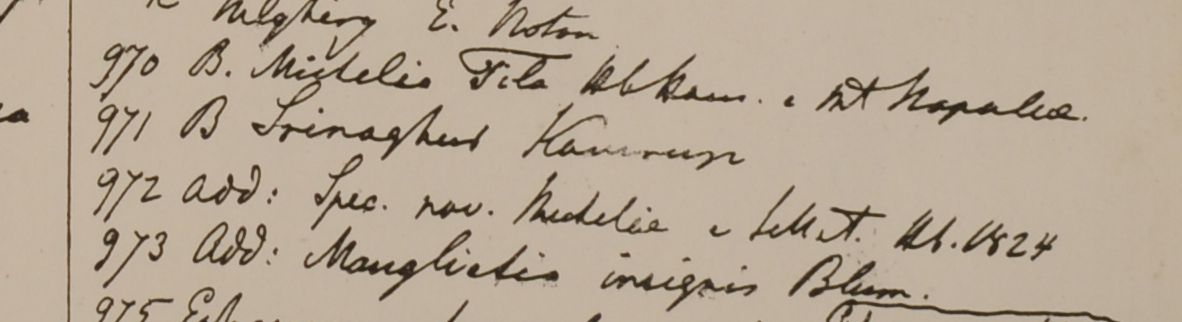 Nilghiry E. Noton
970 B. Michelia Tila Hb Ham. e Mt Napalia.
971 B Srinaghur Kamrup
972 add: Spec. nov. Micheliae e Hb. 1824
973 Add: Manglietia insignis Blum.
975